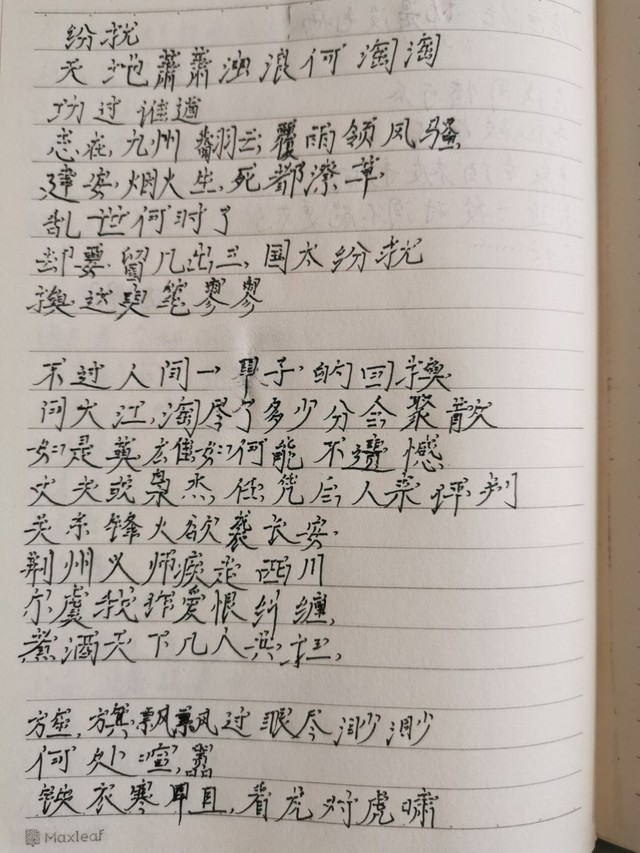 纷扰
天地萧萧浊浪何淘淘
功过谁道
志在九州 翻云覆雨领风骚
建安烟火生死都潦草
乱世何时了
却要留几出三国太纷扰
换这笔寥寥
不过人间一甲子的回换
问大江淘尽了多少分合聚散
如是莫左何能不遗憾
丈夫或枭杰任凭后人来评判
关东锋火欲袭长安
荆州义师疾走西川
尔虞我诈爱恨纠缠
煮酒天下几人共狂
旌旗飘飘过眼尽渺渺
何处喧嚣
铁衣寒甲且看虎对虎啸
Maxleaf